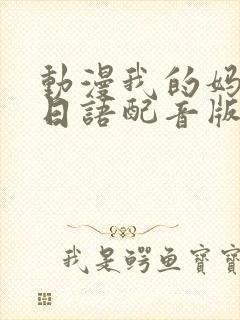 動漫我的妈
日語配音版
我是鳄鱼寶寶